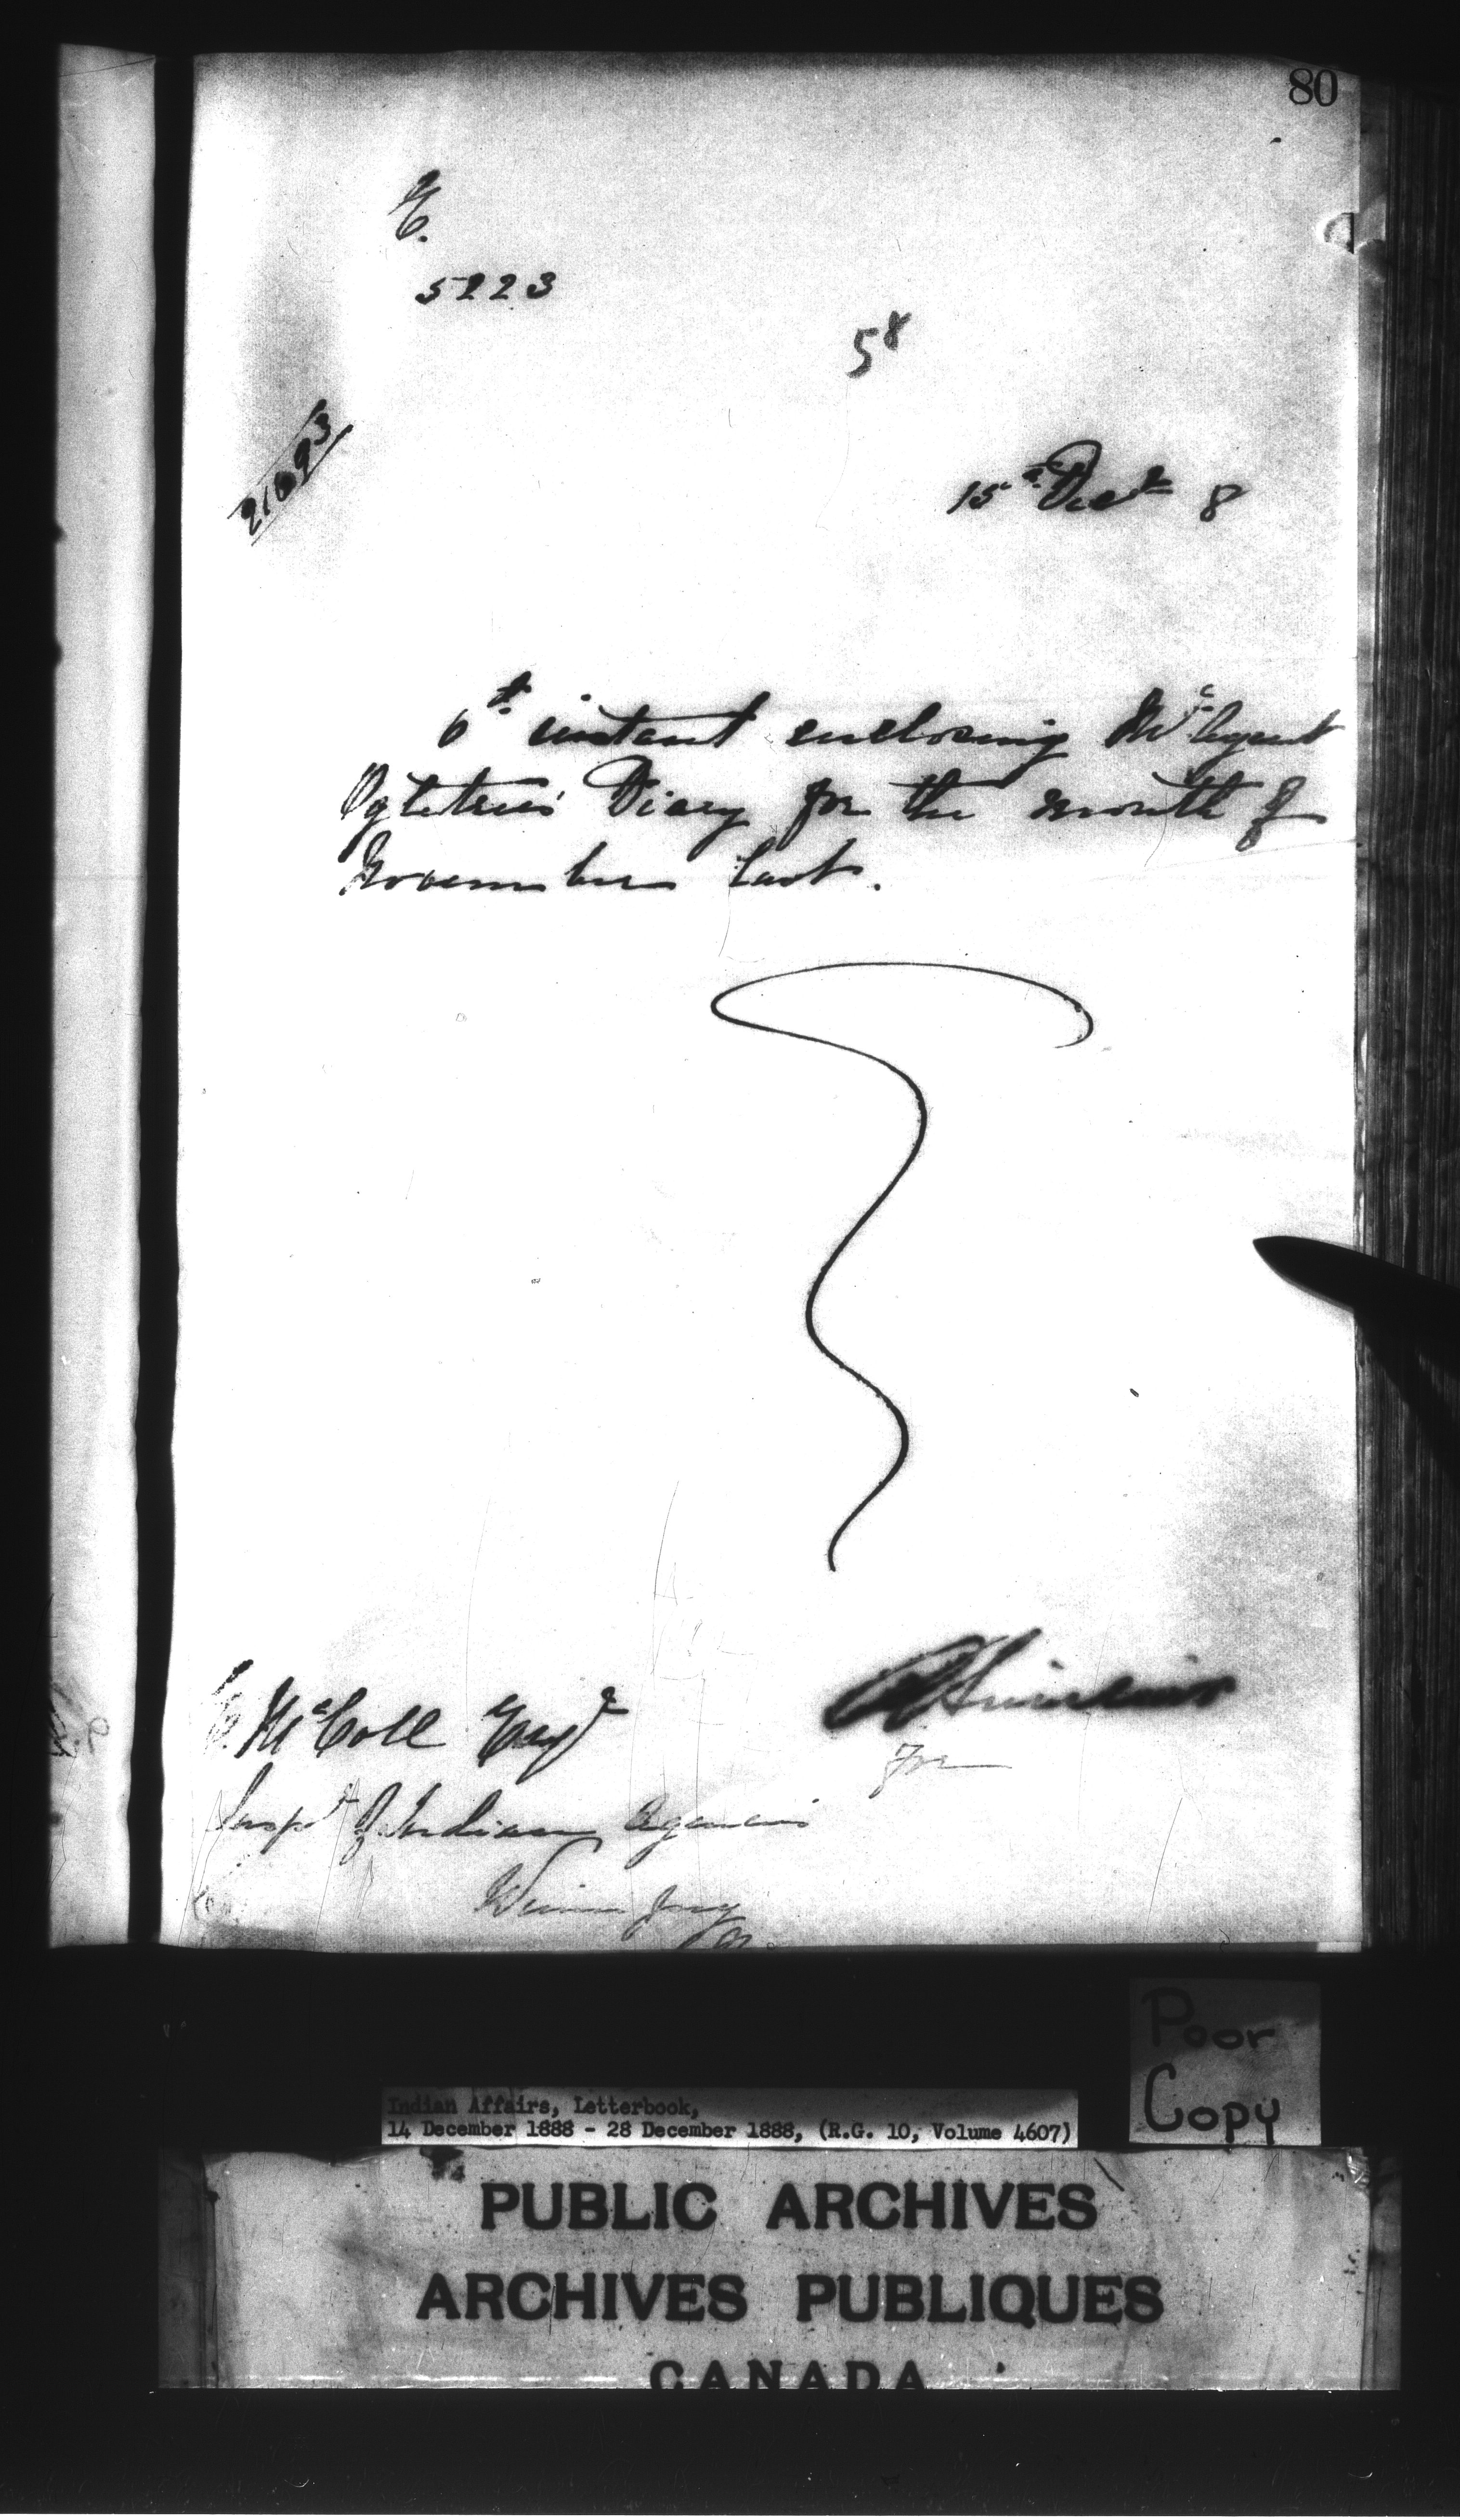 80
E.
5223
58
15th Dec 8
6th instant enclosing Mr Agent
Ogletree's Diary for the month of
November last.
R Sinclair
for
E. McColl Esqre
Inspr of Indian Agencies
Winnipeg
Poor
Copy
Indian Affairs, Letterbook,
14 December 1888 - 28 December 1888, (R.G. 10, Volume 4607)
PUBLIC ARCHIVES
ARCHIVES PUBLIQUES
CANADA